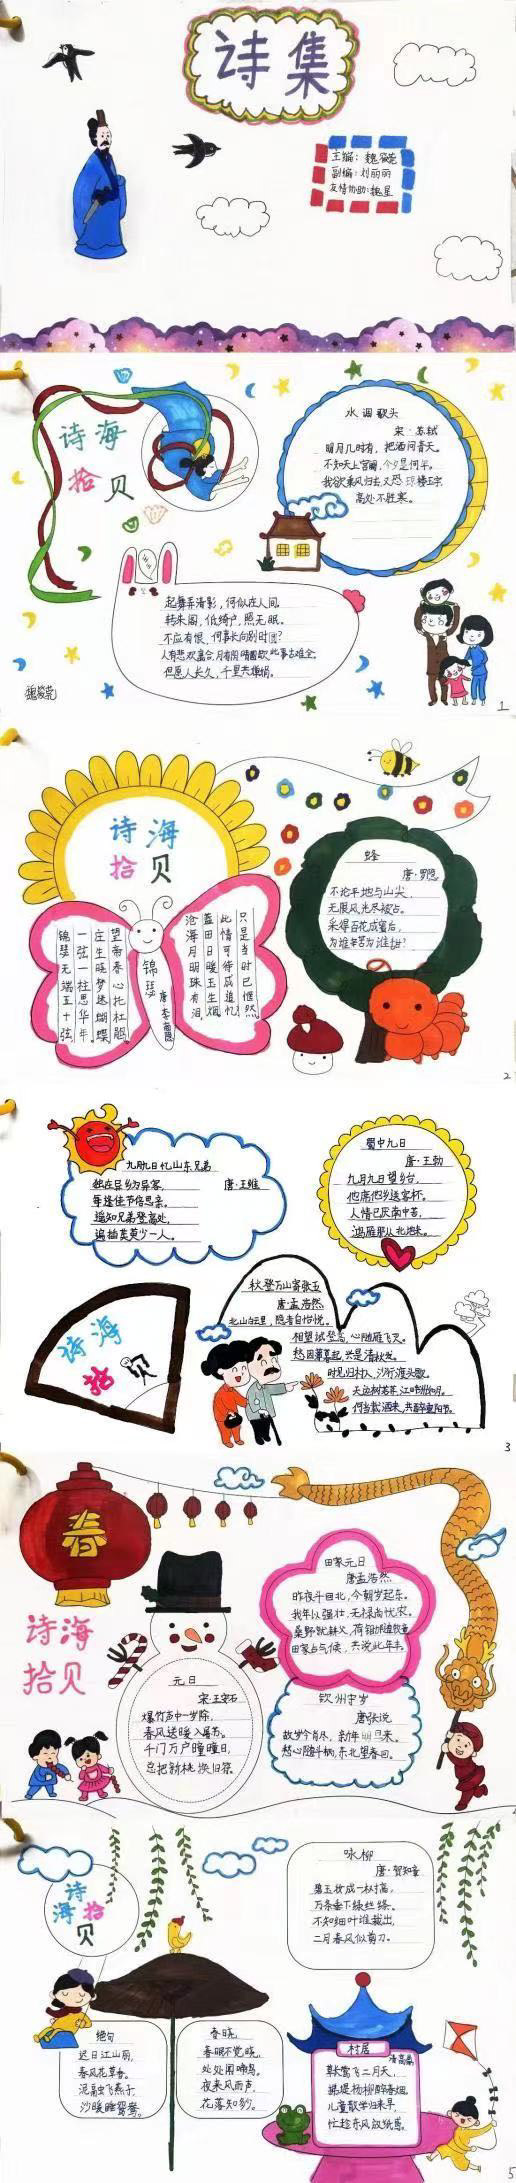 诗集
主编：魏筱尧
副编：刘丽丽
友情协助：魏星
诗海
拾贝
水调歌头
宋·苏轼
明月几时有，把酒问青天。
不知天上宫阙，今夕是何年。
我欲乘风归去，又恐琼楼玉宇
高处不胜寒。
起舞弄清影，何似在人间。
转朱阁，低绮户，照无眠。
不应有恨，何事长向别时圆？
人有悲欢离合，月有阴晴圆缺，此事古难全。
但愿人长久，千里共婵娟。
1
诗海
拾贝
蜂
唐·罗隐
不论平地与山尖，
无限风光尽被占。
采得百花成蜜后，
为谁辛苦为谁甜？
锦瑟
唐·李商隐
锦瑟无端五十弦，
一弦一柱思华年。
庄生晓梦迷蝴蝶，
望帝春心托杜鹃。
沧海月明珠有泪，
蓝田日暖玉生烟。
此情可待成追忆，
只是当时已惘然。
2
九月九日忆山东兄弟
唐·王维
独在异乡为异客，
每逢佳节倍思亲。
遥知兄弟登高处，
遍插茱萸少一人。
蜀中九日
唐·王勃
九月九日望乡台，
他席他乡送客杯。
人情已厌南中苦，
鸿雁那从北地来。
诗海
拾贝
秋登万山寄张五
唐·孟浩然
北山白云里，隐者自怡悦。
相望试登高，心随雁飞灭。
愁因薄暮起，兴是清秋发。
时见归村人，沙行渡头歇。
天边树若荠，江畔洲如月。
何当载酒来，共醉重阳节。
3
春
诗海
拾贝
元日
宋·王安石
爆竹声中一岁除，
春风送暖入屠苏。
千门万户曈曈日，
总把新桃换旧符。
田家元日
唐孟浩然
昨夜斗回北，今朝岁起东。
我年以强壮，无禄尚忧农。
桑野就耕父，荷锄随牧童
田家占气候，共说此年丰。
钦州守岁
唐张说
故岁今宵尽，新年明旦来。
愁心随斗柄，东北望春回。
诗拾
海贝
咏柳
唐·贺知章
碧玉妆成一树高，
万条垂下绿丝绦。
不知细叶谁裁出，
二月春风似剪刀。
绝句
迟日江山丽，
春风花草香。
泥融飞燕子，
沙暖睡鸳鸯。
春晓
春眠不觉晓，
处处闻啼鸟。
夜来风雨声，
花落知多少。
村居
清高鼎
草长莺飞二月天，
拂堤杨柳醉春烟。
儿童散学归来早，
忙趁东风放纸鸢。
5